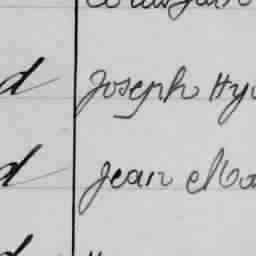 d Joseph Hy
d Jean Ma
d